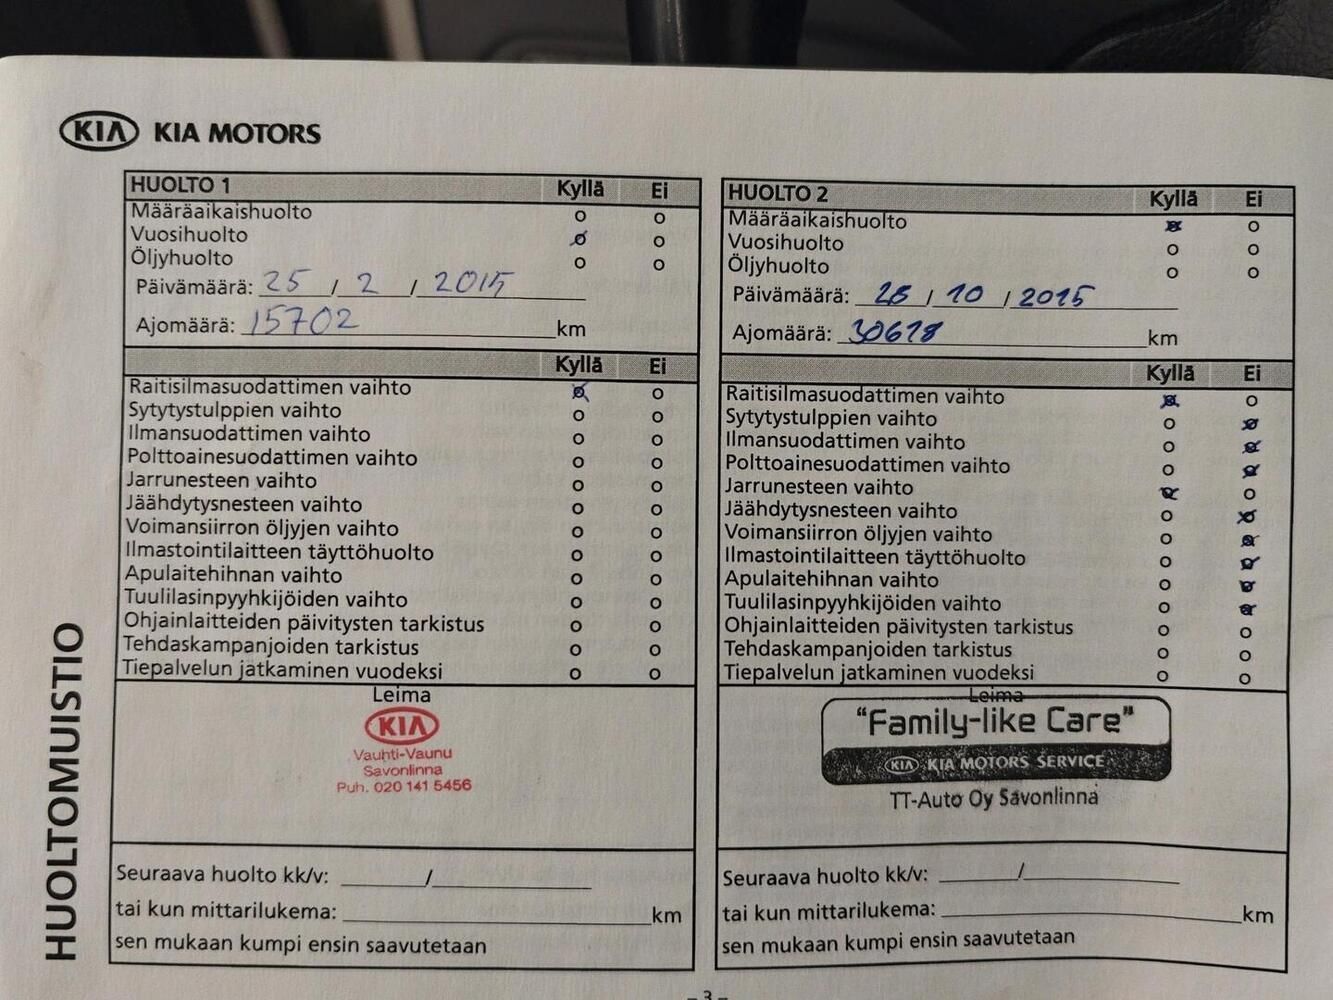 KIA KIA MOTORS
HUOLTOMUISTIO
HUOLTO 1 Kyllä Ei
Määräaikaishuolto o o
Vuosihuolto o o
Öljyhuolto o o
Päivämäärä: 25 / 2 / 2015
Ajomäärä: 15702 km
Kyllä Ei
Raitisilmasuodattimen vaihto o o
Sytytystulppien vaihto o o
Ilmansuodattimen vaihto o o
Polttoainesuodattimen vaihto o o
Jarrunesteen vaihto o o
Jäähdytysnesteen vaihto o o
Voimansiirron öljyjen vaihto o o
Ilmastointilaitteen täyttöhuolto o o
Apulaitehihnan vaihto o o
Tuulilasinpyyhkijöiden vaihto o o
Ohjainlaitteiden päivitysten tarkistus o o
Tehdaskampanjoiden tarkistus o o
Tiepalvelun jatkaminen vuodeksi o o
Leima
KIA
Vauhti-Vaunu
Savonlinna
Puh. 020 141 5456
Seuraava huolto kk/v: /
tai kun mittarilukema: km
sen mukaan kumpi ensin saavutetaan
HUOLTO 2 Kyllä Ei
Määräaikaishuolto o o
Vuosihuolto o o
Öljyhuolto o o
Päivämäärä: / 10 / 2015
Ajomäärä: 30678 km
Kyllä Ei
Raitisilmasuodattimen vaihto o o
Sytytystulppien vaihto o o
Ilmansuodattimen vaihto o o
Polttoainesuodattimen vaihto o o
Jarrunesteen vaihto o o
Jäähdytysnesteen vaihto o o
Voimansiirron öljyjen vaihto o o
Ilmastointilaitteen täyttöhuolto o o
Apulaitehihnan vaihto o o
Tuulilasinpyyhkijöiden vaihto o o
Ohjainlaitteiden päivitysten tarkistus o o
Tehdaskampanjoiden tarkistus o o
Tiepalvelun jatkaminen vuodeksi o o
Leima
"Family-like Care"
KIA KIA MOTORS SERVICE
TT-Auto Oy Savonlinna
Seuraava huolto kk/v: /
tai kun mittarilukema: km
sen mukaan kumpi ensin saavutetaan
- 3 -